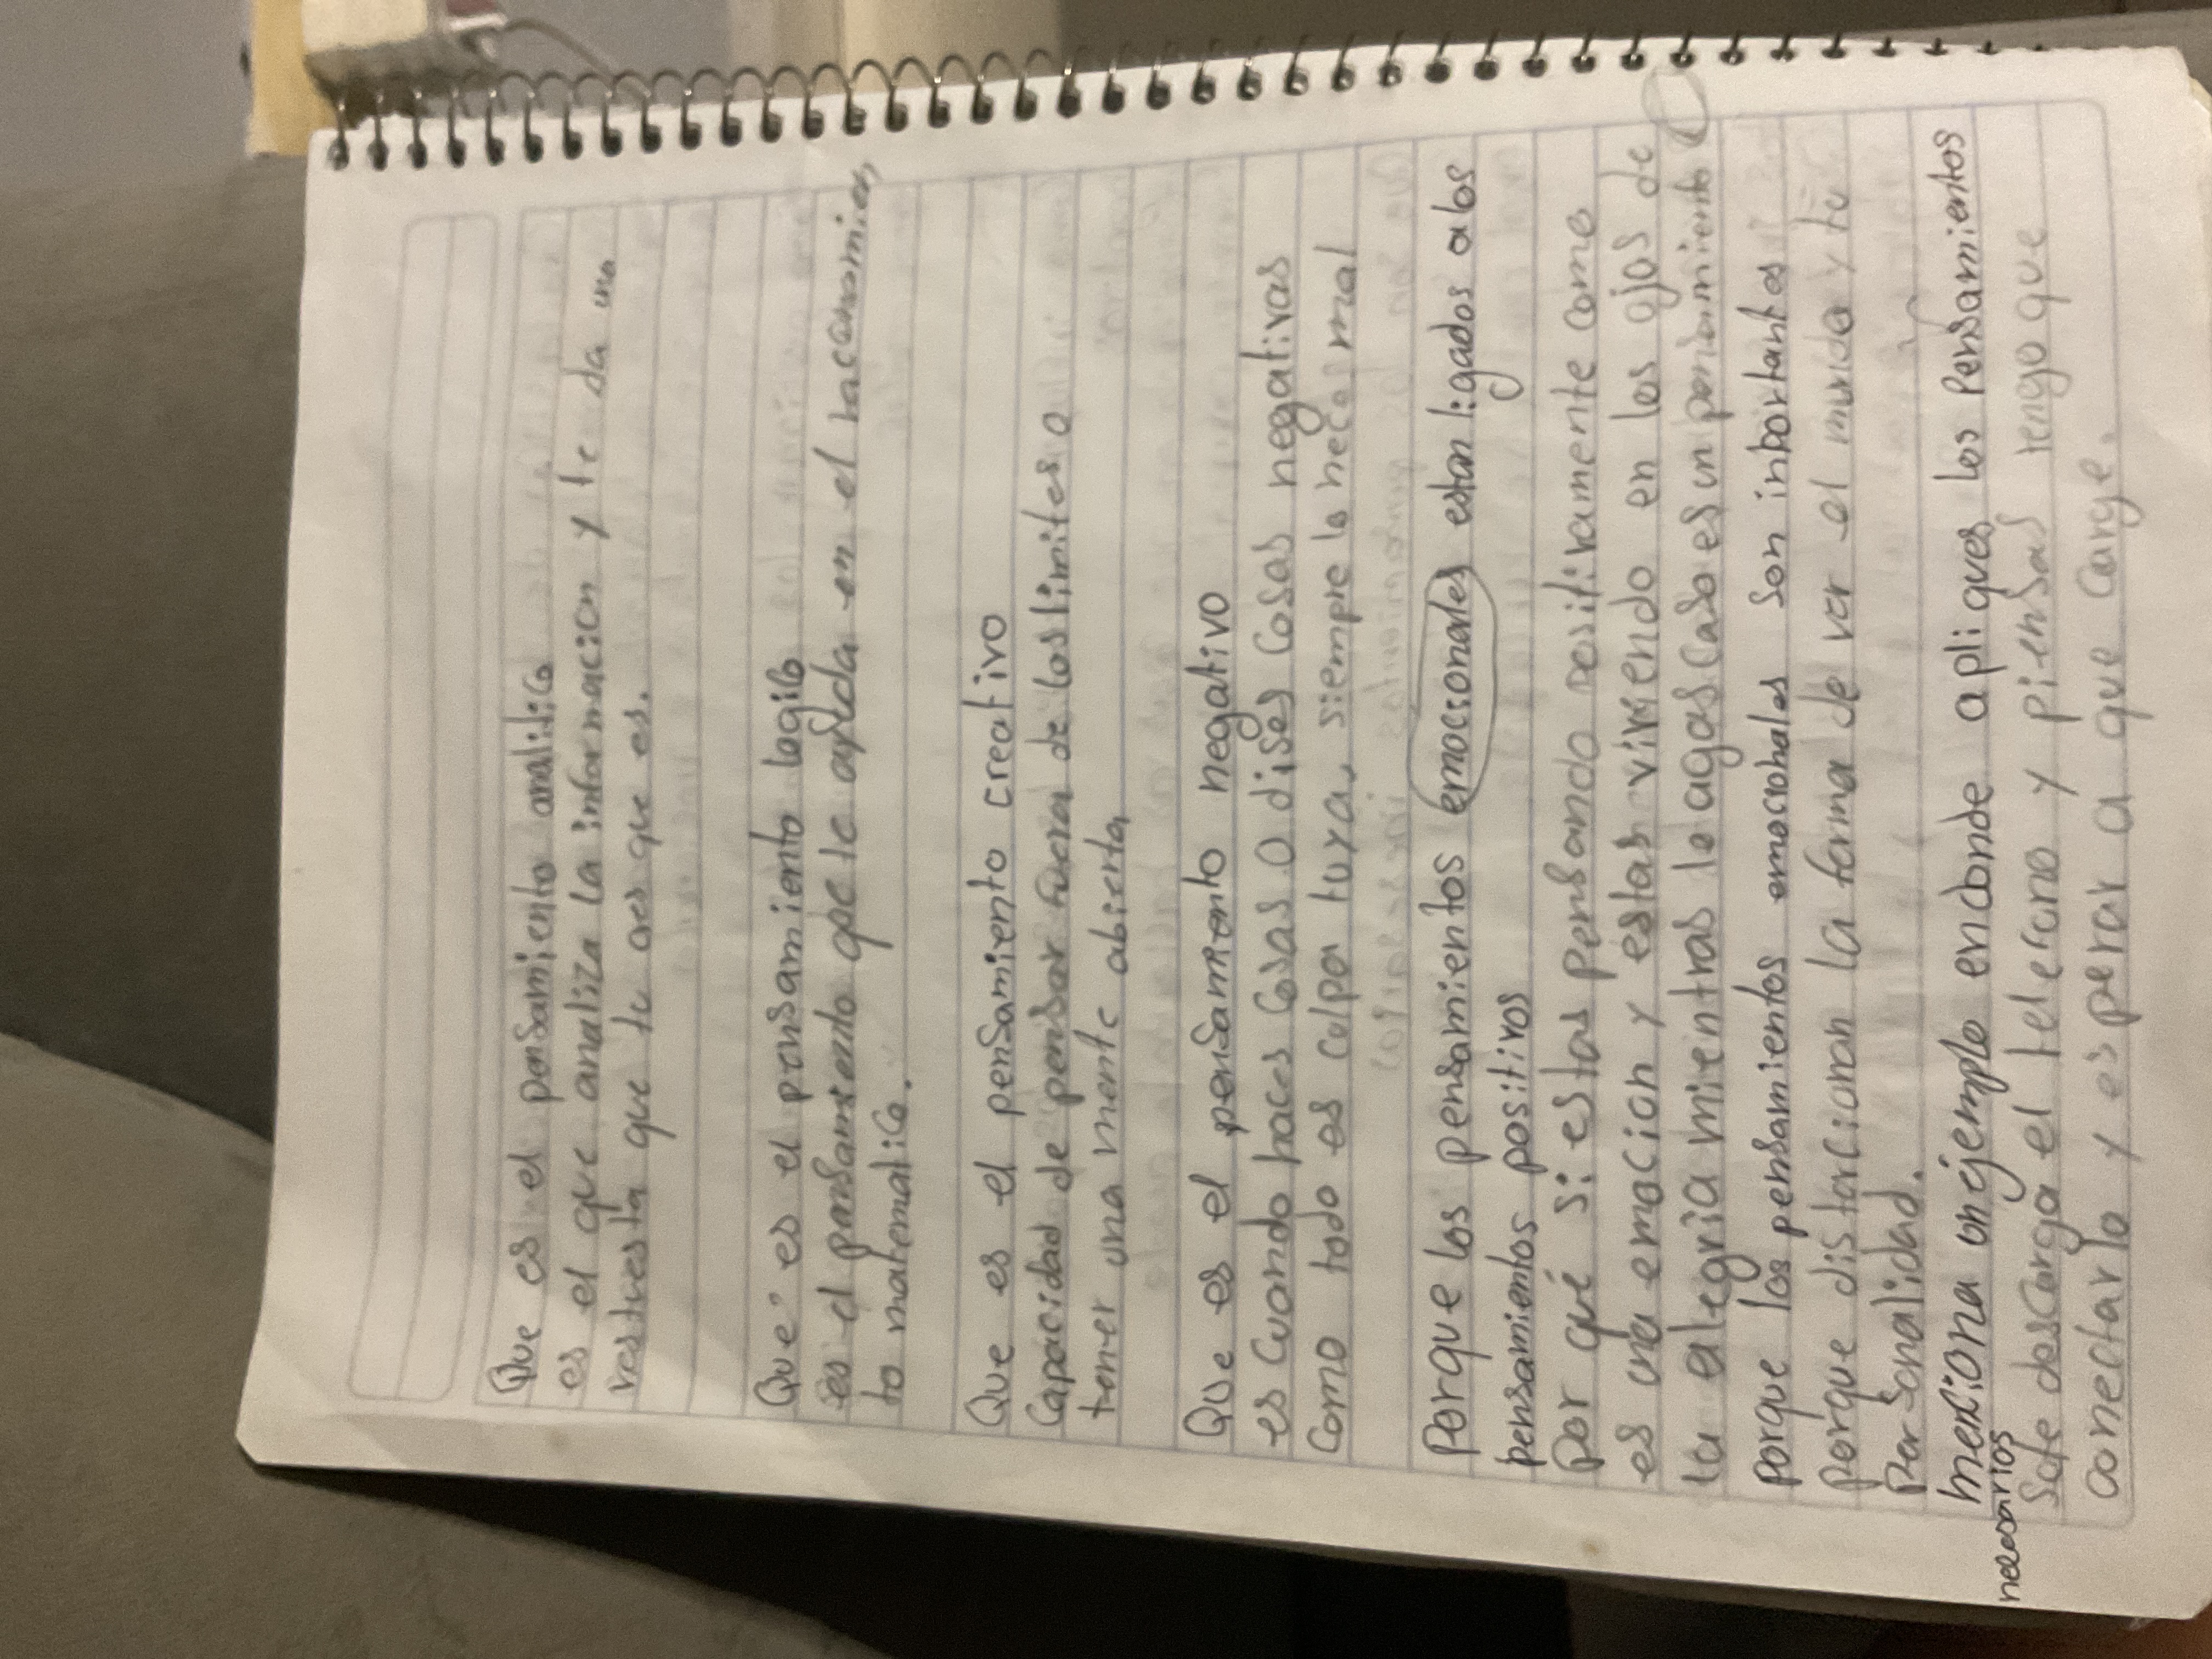 Que es el pensamiento analitico
es el que analiza la informacion y te da una
restuesta que tu ves que es.
Que es el pensamiento logico
es el pensamiento que te ayuda en el raconamien
to matematico.
Que es el pensamiento creativo
Capacidad de pensar fuera de los limites o
tener una mente abierta
Que es el pensamiento negativo
es cuando haces cosas o dises cosas negativas
como todo es culpa tuya, siempre lo heces mal
Porque los pensamientos emocionales estan ligados a los
pensamientos positivos
Por qué si estas pensando positivamente como
es una emocion y estas viviendo en los ojos de
la alegria mientras lo agas caso es un pensamiento
porque los pensamientos emocionales son inportantes
porque distorcionan la forma de ver el mundo y tu
personalidad.
menziona un ejemplo endonde apliques los pensamientos
necesarios
Sete descarga el telefono y piensas tengo que
conectarlo y esperar a que carge.